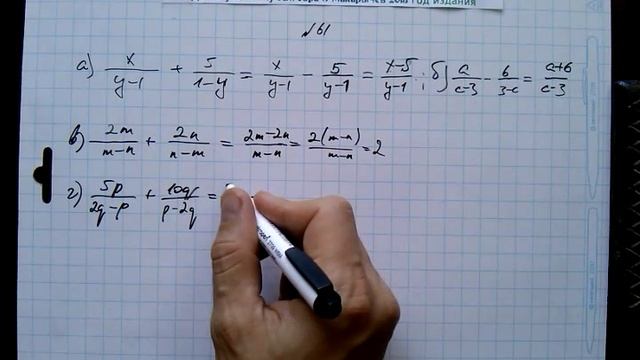 год издания
№61
а) x/(y-1) + 5/(1-y) = x/(y-1) - 5/(y-1) = (x-5)/(y-1) ; б) a/(c-3) - 6/(3-c) = (a+6)/(c-3)
в) 2m/(m-n) + 2n/(n-m) = (2m-2n)/(m-n) = 2(m-n)/(m-n) = 2
г) 5p/(2q-p) + 10q/(p-2q) =